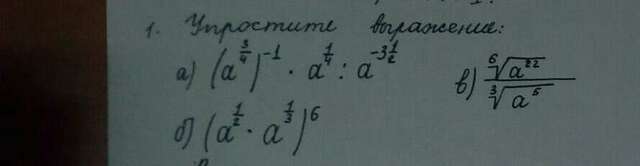 1. Упростите выражение:
а) (a^{3/4})^{-1} · a^{1/4} : a^{-3 1/2}
б) (a^{1/2} · a^{1/3})^6
в) \frac{\sqrt[6]{a^{22}}}{\sqrt[3]{a^5}}